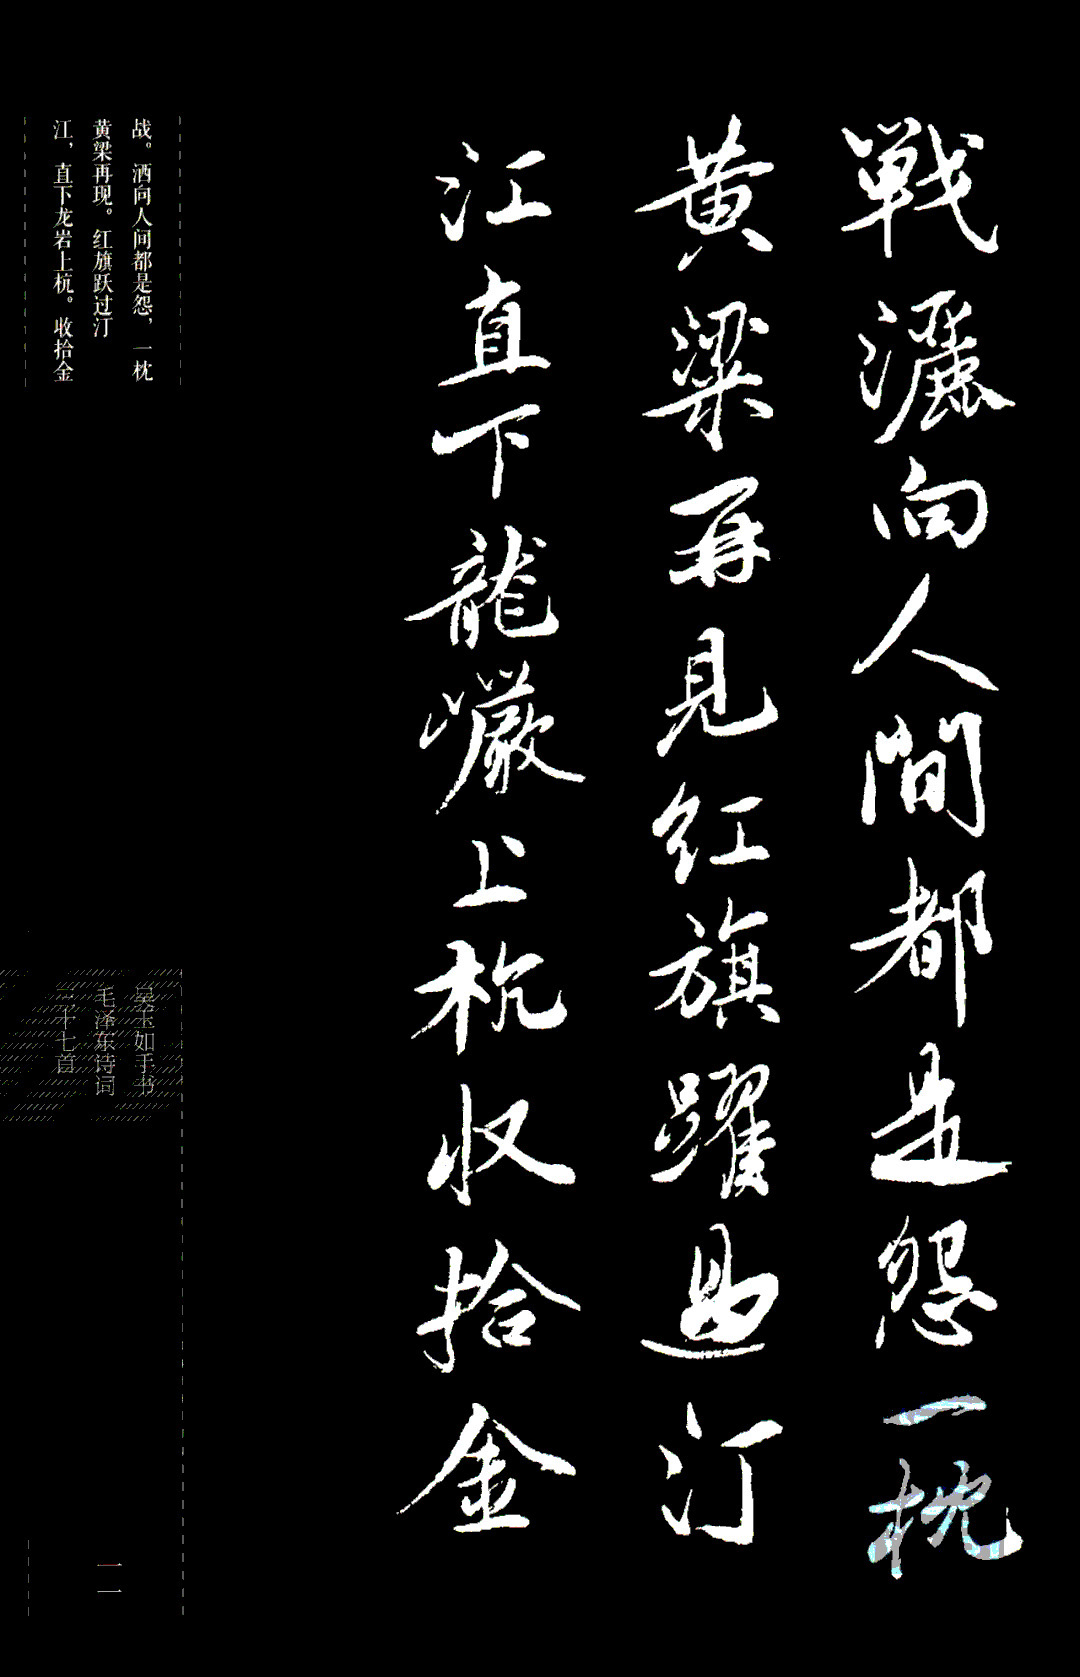 戰灑向人間都是怨一枕
黄粱再見红旗躍過汀
江直下龍巖上杭收拾金
战。洒向人间都是怨，一枕
黄粱再现。红旗跃过汀
江，直下龙岩上杭。收拾金
吴玉如手书
毛泽东诗词
三十七首
一一